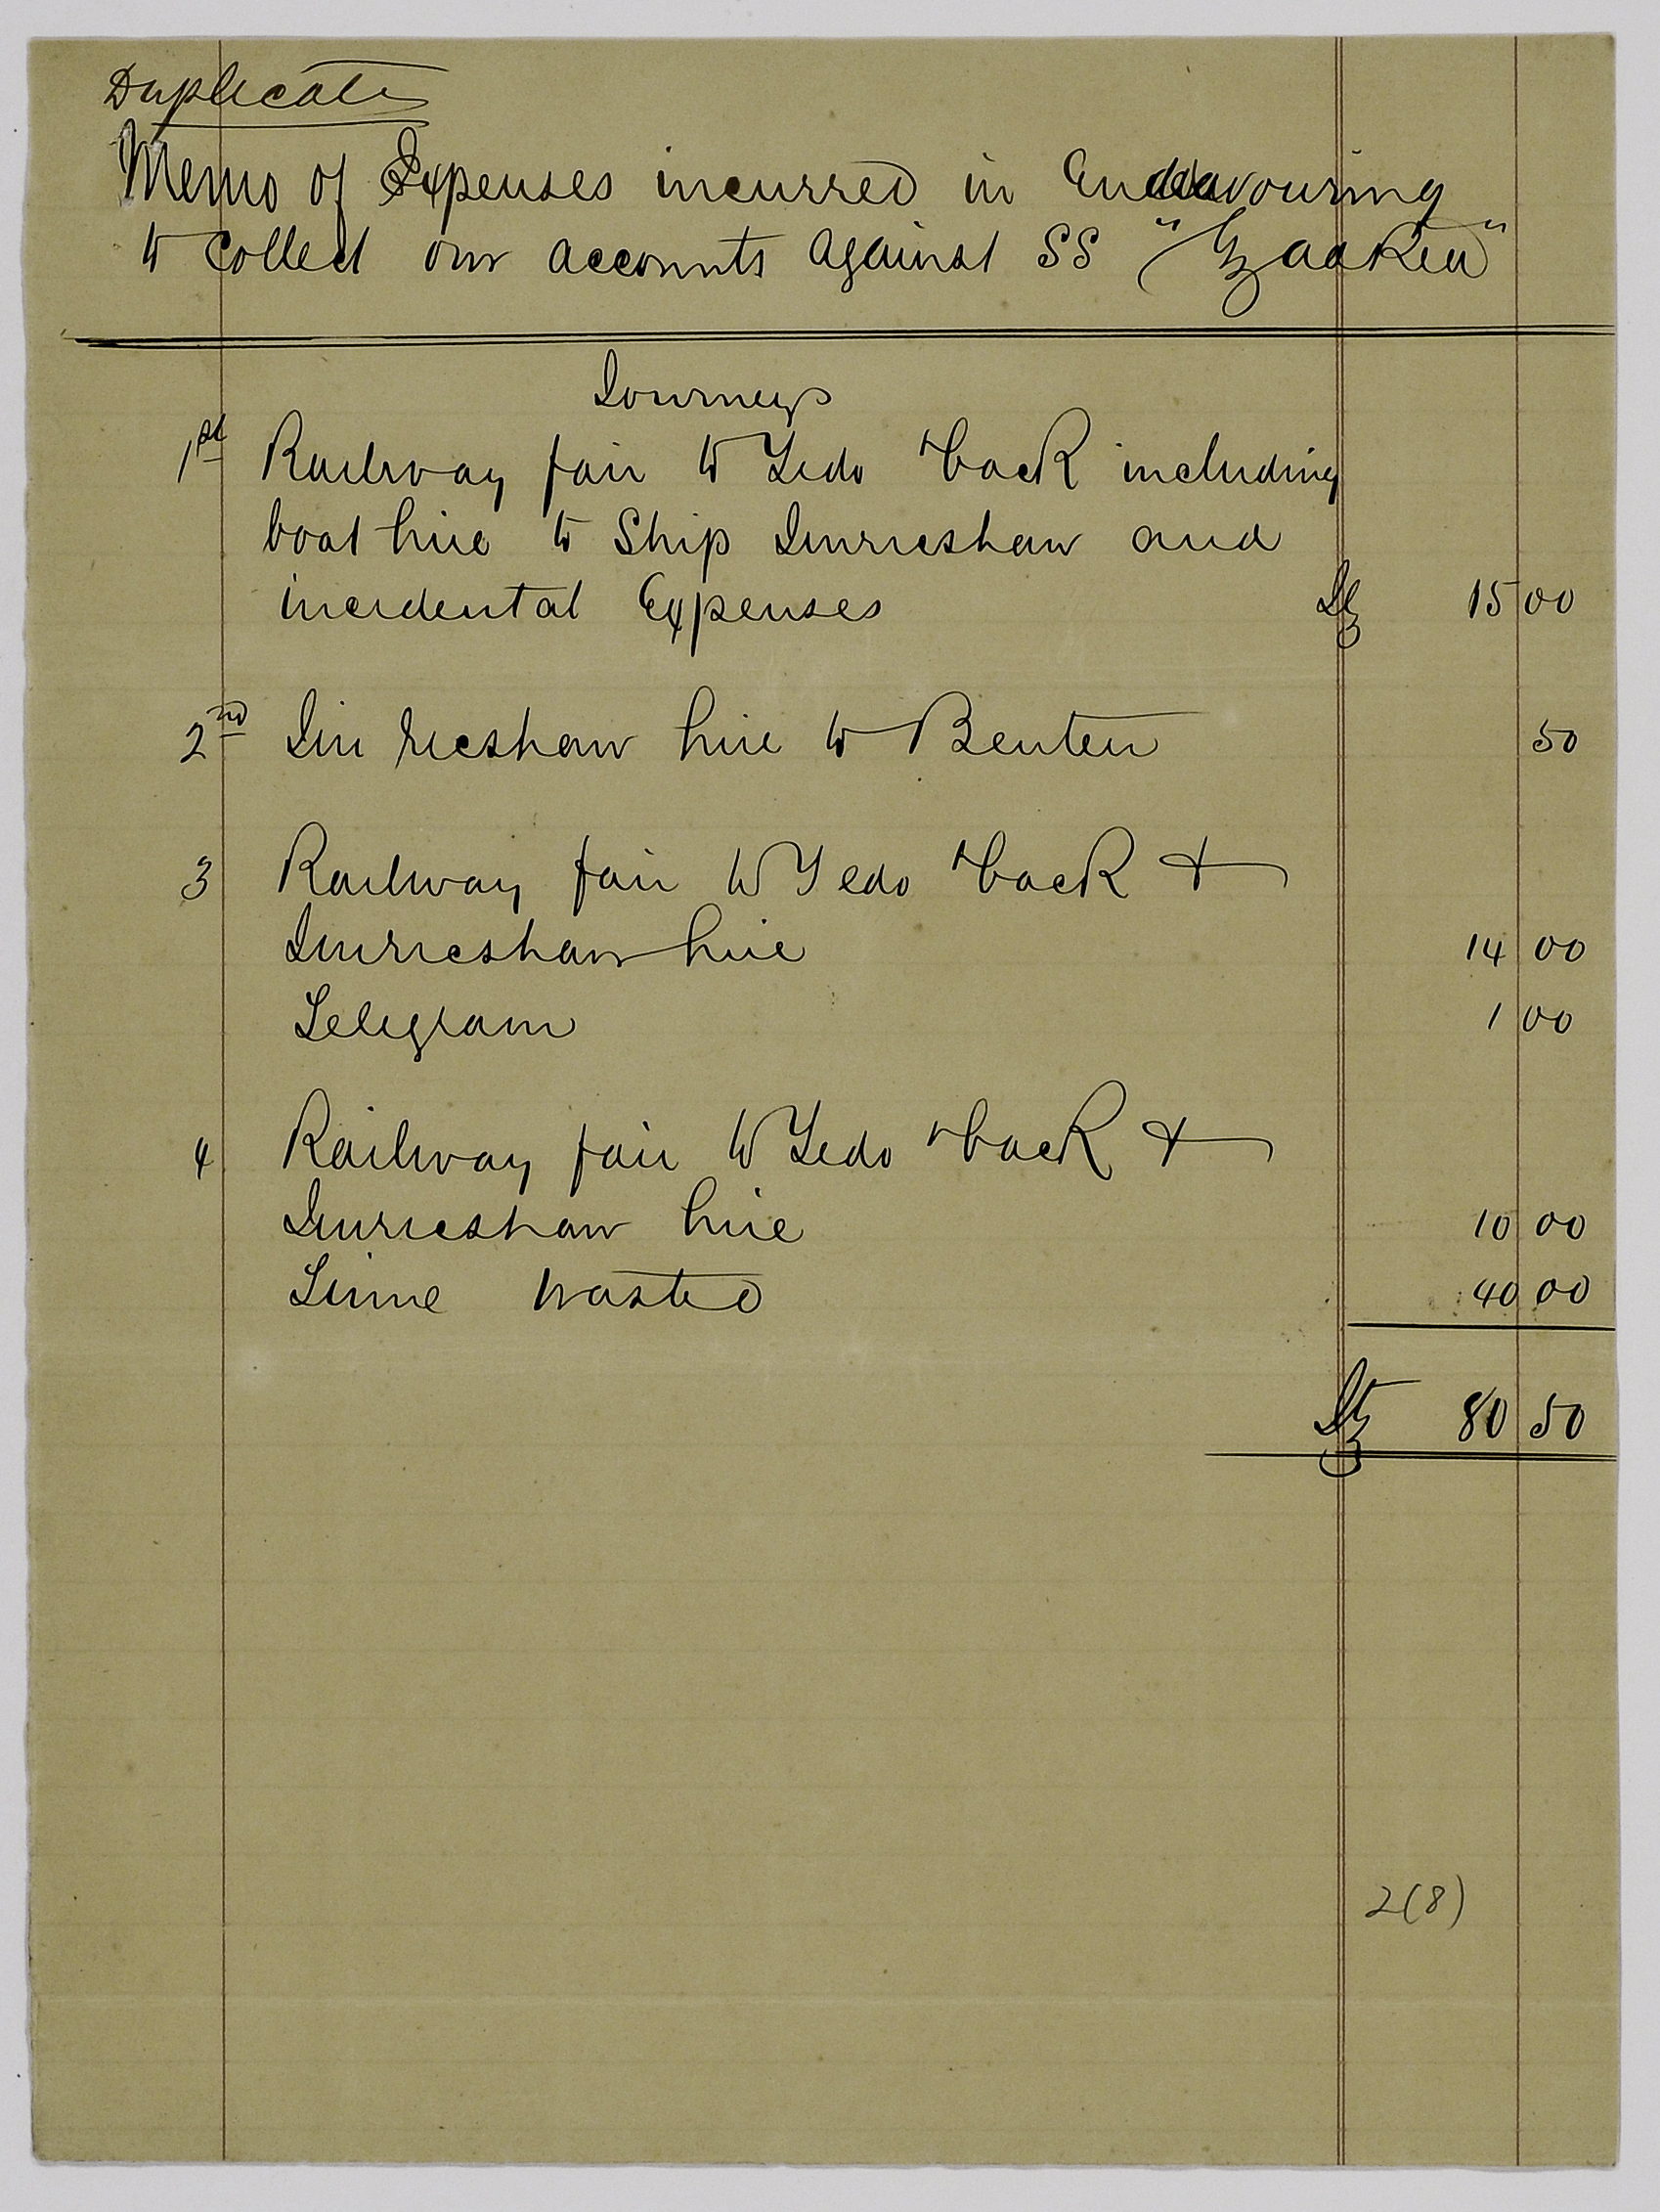 Duplicate
Memo of Expenses incurred in Endeavouring
to collect our accounts against SS
Journeys
1st Railway fair to Yedo & back including
boat hire to Ship Jinricshaw and
incidental Expenses 15 00
2nd Jin ricshaw hire to Benten 50
3 Railway fair to Yedo & back &
Jinricshaw hire 14 00
Telegram 1 00
4 Railway fair to Yedo & back &
Jinricshaw hire 10 00
Time wasted 40 00
80 50
2(8)